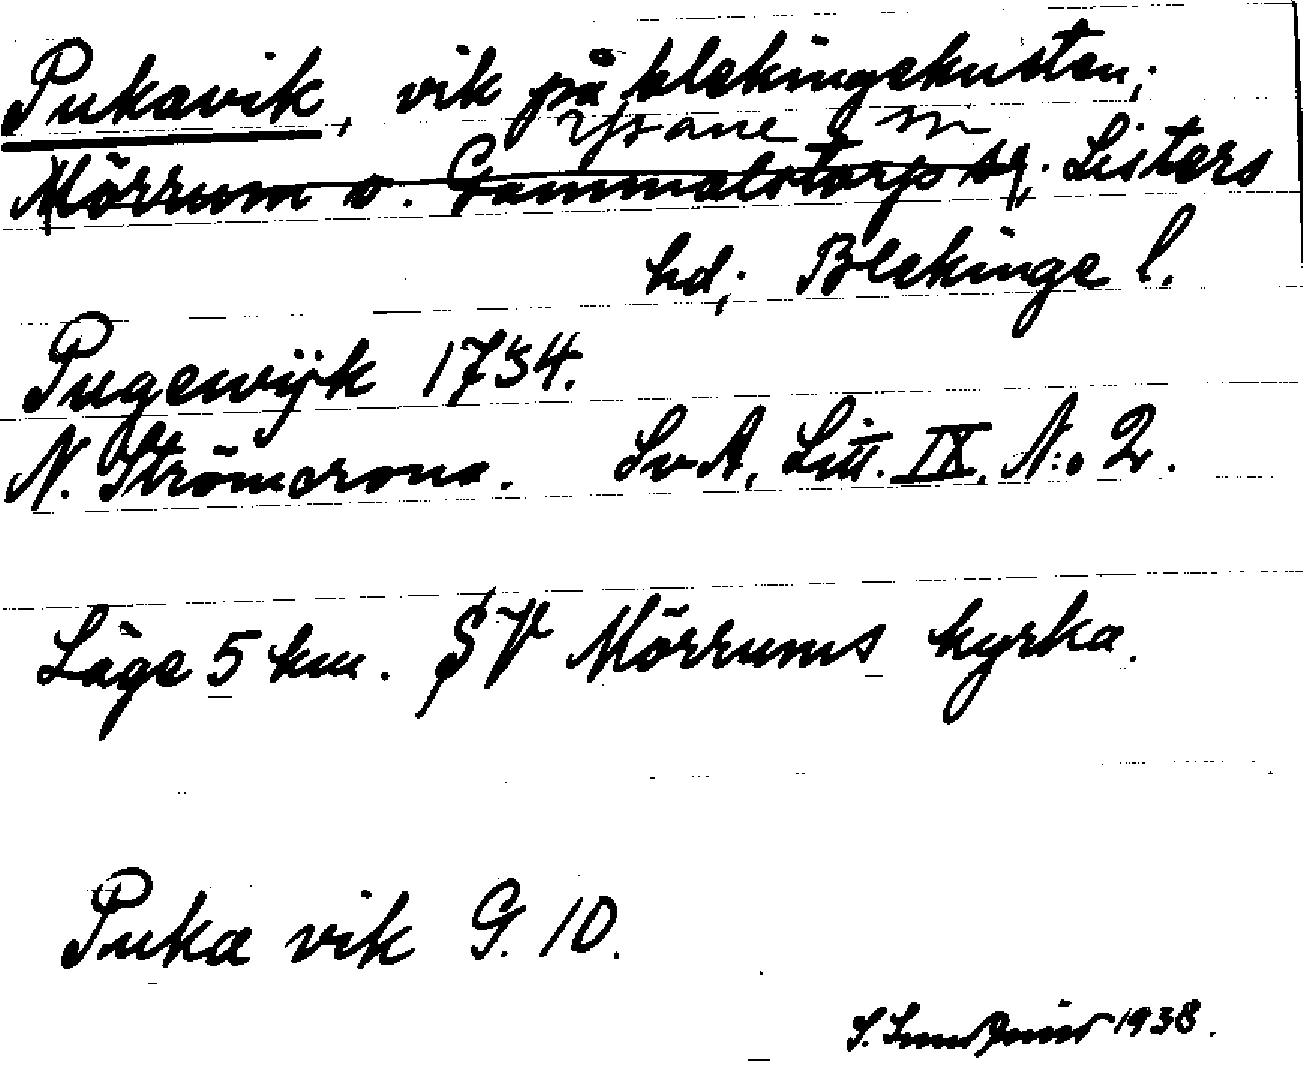 Pukavik, vik på blekingekusten;
Ysane sn
Mörrum o. Gammalstorps sr. Listers
hd; Blekinge l.
Pugewijk 1734.
N. Strömcrona. SvA, Litt. IX, N:o 2.
Läge 5 km. SV Mörrums kyrka.
Puka vik G. 10.
1938.